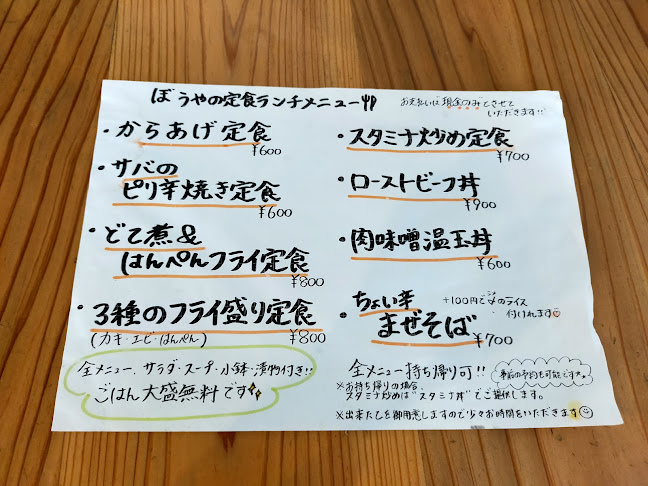 ぼうやの定食ランチメニュー
お支払いは現金のみとさせて
いただきます!!
・からあげ定食
¥600
・サバの
ピリ辛焼き定食
¥600
・どて煮&
はんぺんフライ定食
¥800
・3種のフライ盛り定食
(カキ・エビ・はんぺん) ¥800
全メニュー、サラダ・スープ・小鉢・漬物付き!!
ごはん大盛無料です
・スタミナ炒め定食
¥700
・ローストビーフ丼
¥900
・肉味噌温玉丼
¥600
・ちょい辛
まぜそば
¥700
+100円で〆のライス
シメ
付けれます
全メニュー持ち帰り可!!
事前の予約も可能です
※お持ち帰りの場合、
スタミナ炒めは"スタミナ丼"でご提供します。
※出来たてを御用意しますので少々お時間をいただきます